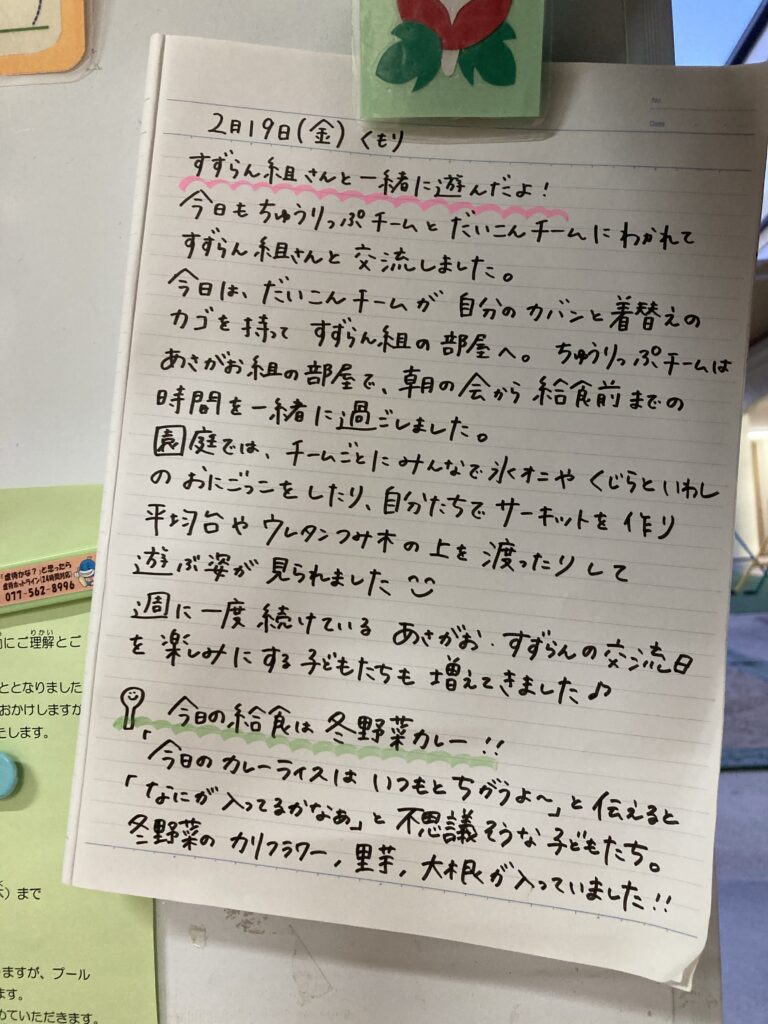 No.
Date
2月19日(金) くもり
すずらん組さんと一緒に遊んだよ!
今日もちゅうりっぷチームとだいこんチームにわかれて
すずらん組さんと交流しました。
今日は、だいこんチームが自分のカバンと着替えの
カゴを持ってすずらん組の部屋へ。ちゅうりっぷチームは
あさがお組の部屋で、朝の会から給食前までの
時間を一緒に過ごしました。
園庭では、チームごとにみんなで氷オニやくじらといわし
のおにごっこをしたり、自分たちでサーキットを作り
平均台やウレタンつみ木の上を渡ったりして
遊ぶ姿が見られました
週に一度続けているあさがお・すずらんの交流日
を楽しみにする子どもたちも増えてきました♪
今日の給食は冬野菜カレー!!
「今日のカレーライスはいつもとちがうよ〜」と伝えると
「なにが入ってるかなぁ」と不思議そうな子どもたち。
冬野菜のカリフラワー,里芋,大根が入っていました!!
「虐待かな?」と思ったら
虐待ホットライン(24時間対応)
077-562-8996
にご理解とご
りかい
ととなりました
おかけしますが
たします。
)まで
ますが、プール
ます。
めていただきます。